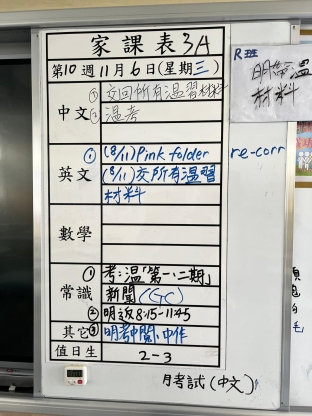 家課表3A
第10週11月6日(星期三)
中文
① 交回所有溫習材料
② 溫考
英文
① (8/11) Pink folder
(8/11) 交所有溫習
材料
數學
常識
① 考:溫「第一、二期」
新聞 (GC)
② 明返8:15-11:45
其它
③ 明考中閱、中作
值日生
2-3
R班
材料
re-corr
月考試(中文)